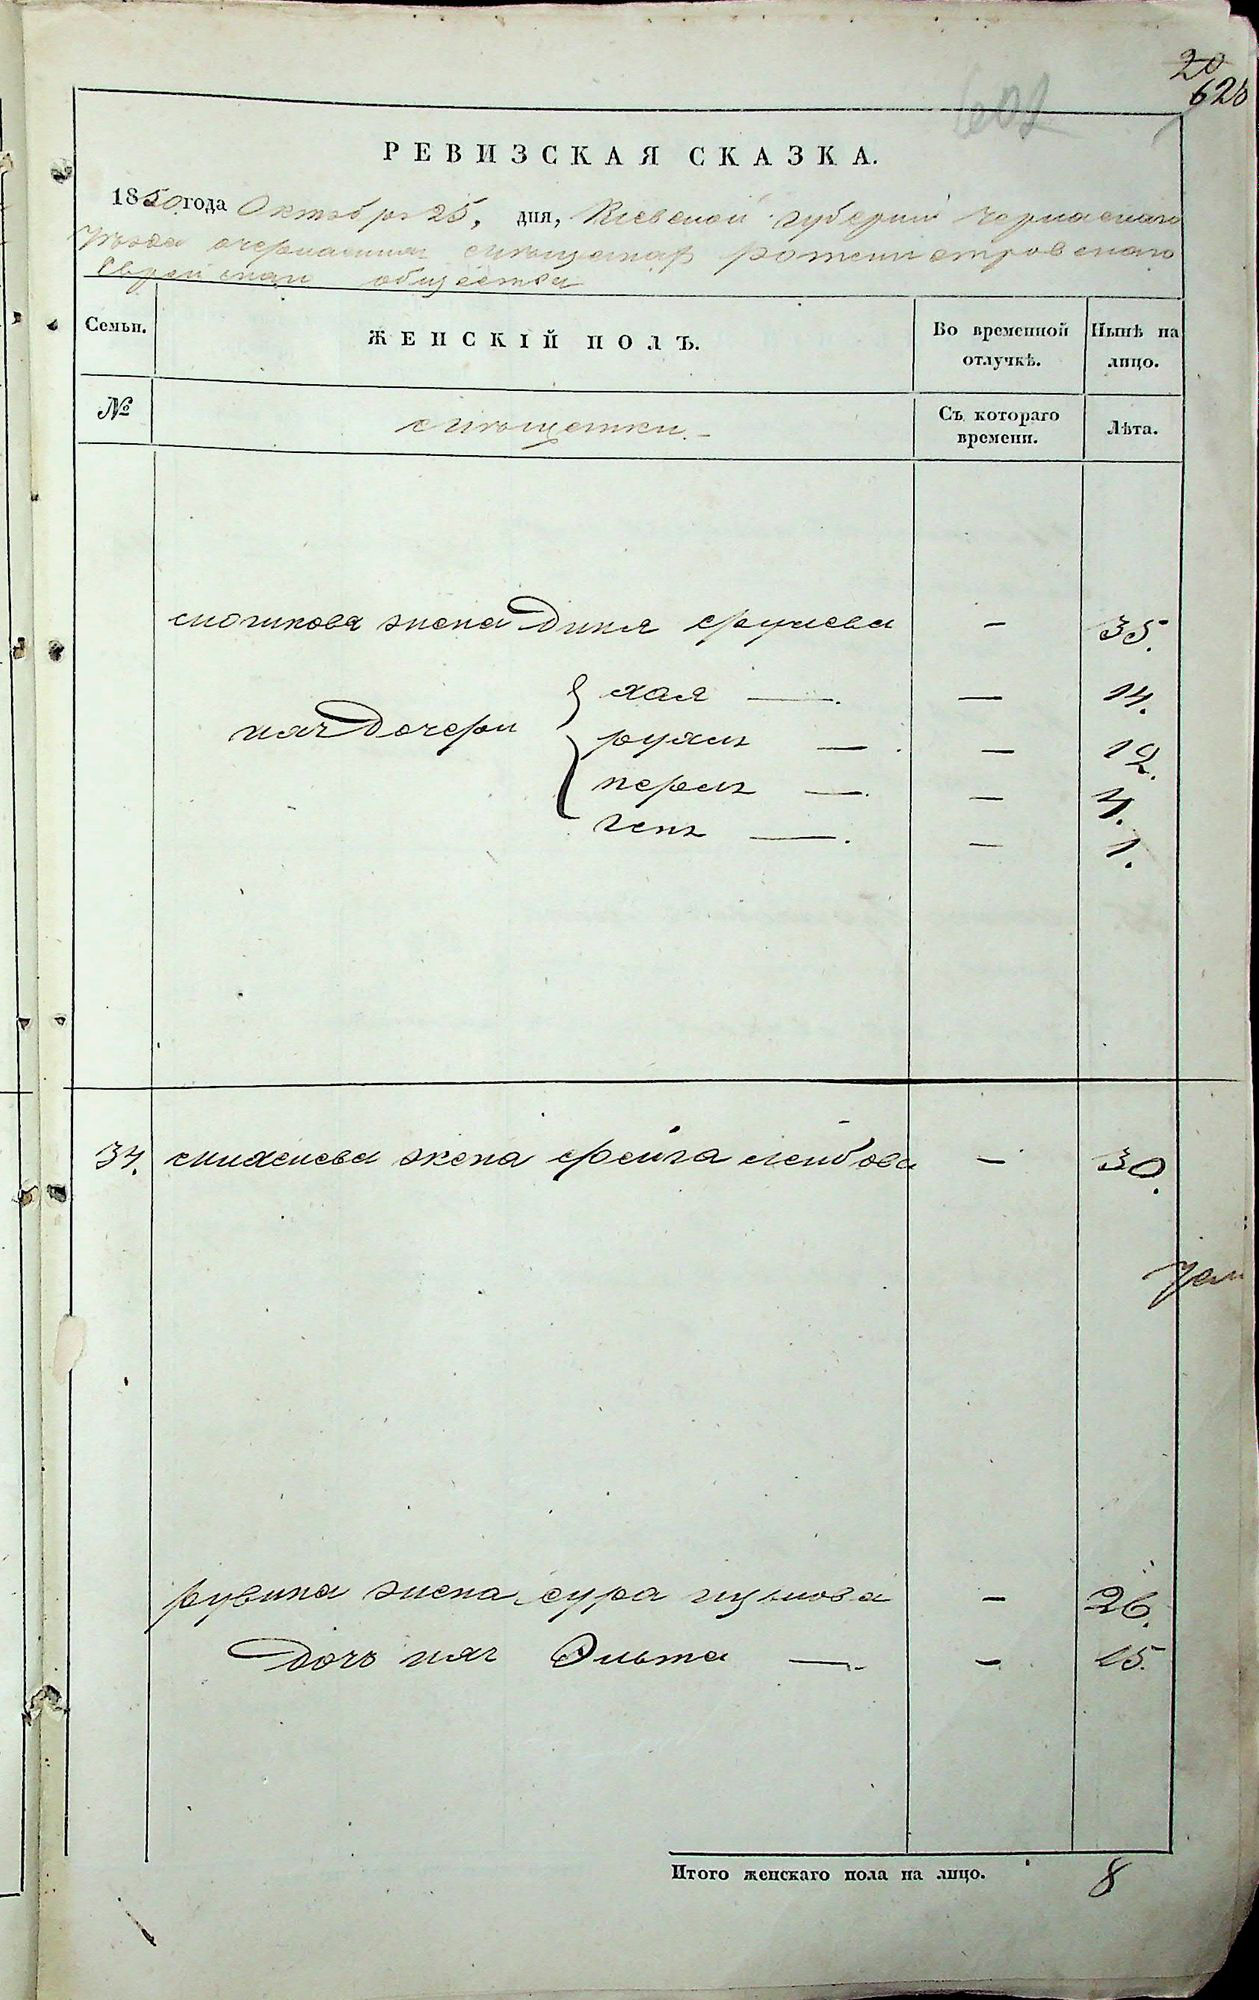 20
628
602
РЕВИЗСКАЯ СКАЗКА.
1850 года Октября 25, дня, Киевской губернии Черкаскаго
уезда о черкаских мещанах ротмистровскаго
Еврейскаго общества
Семьи. ЖЕНСКІЙ ПОЛЪ. Во временной отлучкѣ. Нынѣ на лицо.
№ мещанки. Съ котораго времени. Лѣта.
мошкова жена Диня срулева — 35.
хая — — 14.
ихъ дочери рухль — — 12.
перль — — 4.
генъ — — 1.
34. михелева жена фейга лейбова — 30.
рувина жена сура ицькова — 26.
дочь ихъ Эльта — — 15.
Итого женскаго пола на лицо. 8